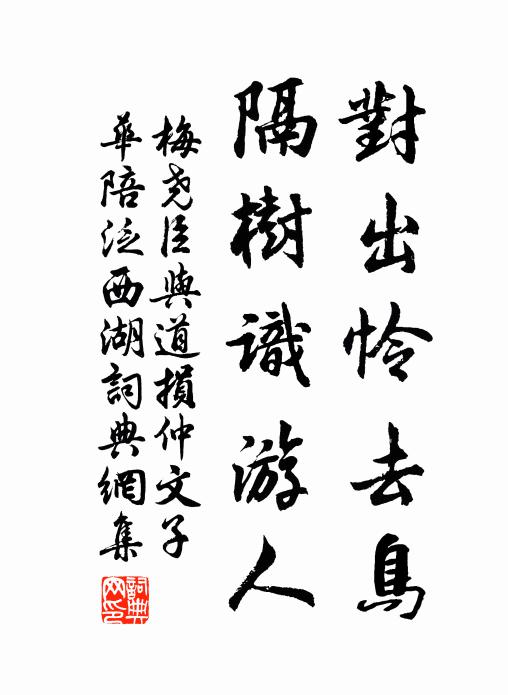 對出怜去鳥
隔樹識游人
梅堯臣與道損仲文子
華陪泛西湖詞典網集
詞典
网印